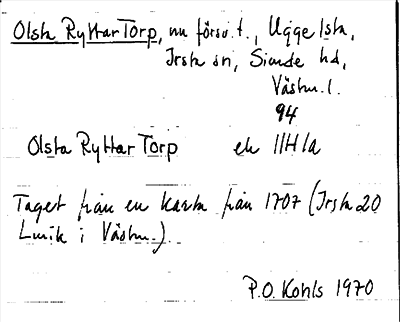 Olsta RyttarTorp, nu försv.t., Uggelsta,
Irsta sn, Siende hd,
Västm.l.
94
Olsta RyttarTorp ek 11H1a
Taget från en karta från 1707 (Irsta 20
Lmk i Västm.).
P.O. Kohls 1970